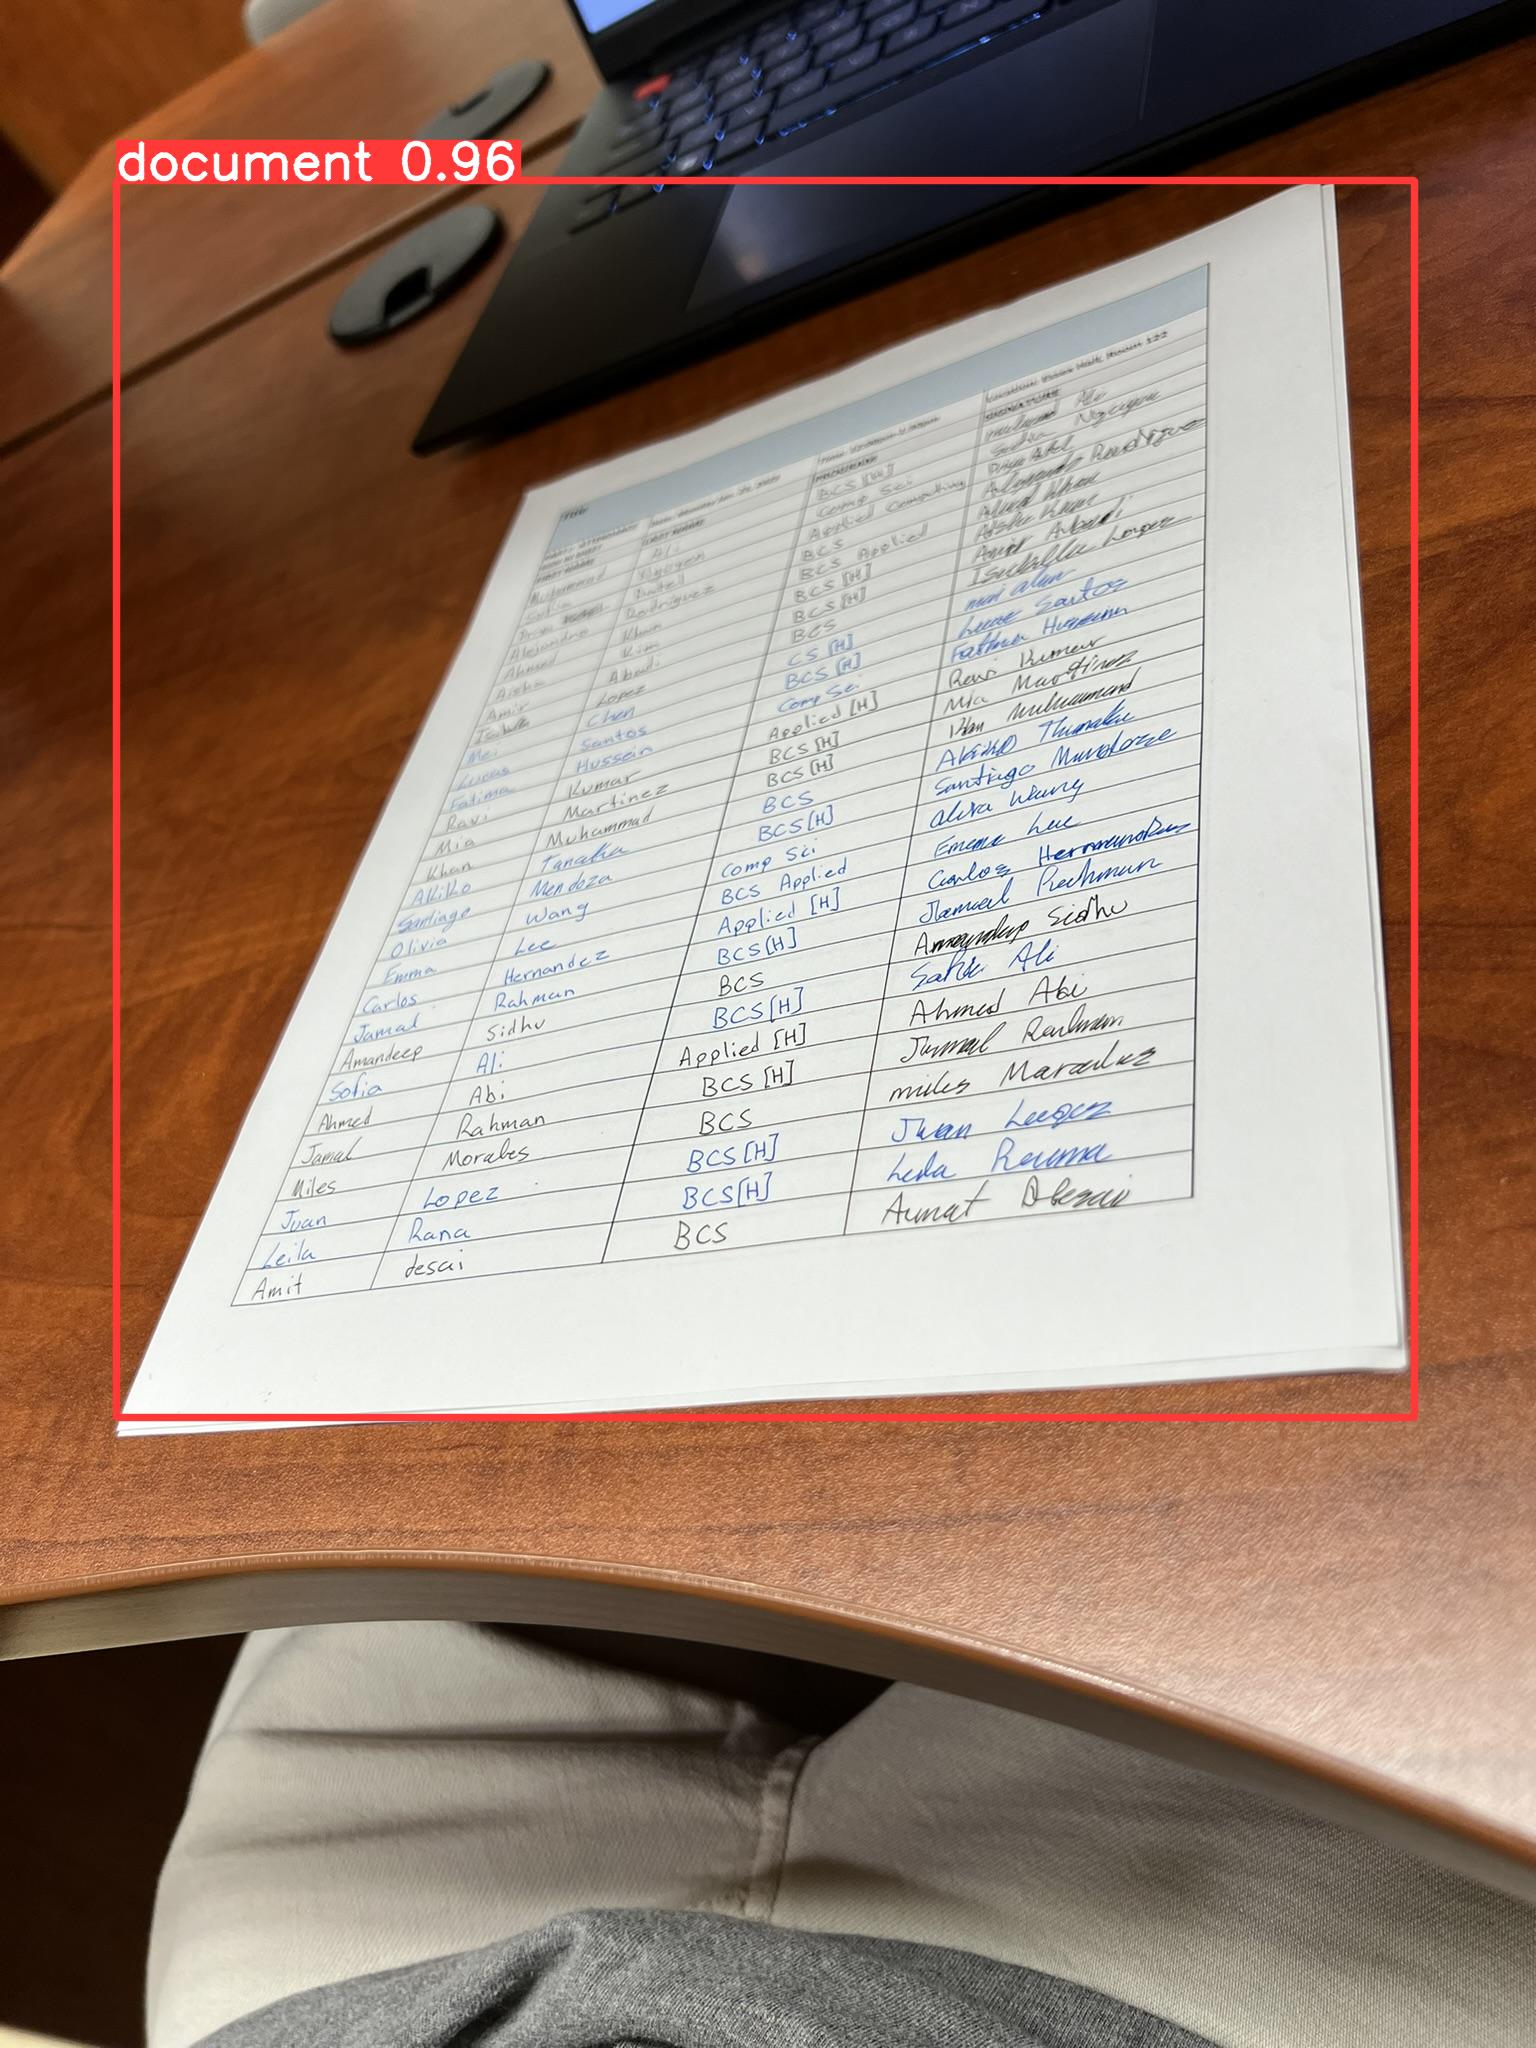 document 0.96
LAST NAME
SIGNATURE
Muhammad Ali BCS [H]
Sofia Nguyen Comp Sci Sofia Nguyen
Priya Patel Applied Computing Priya Patel
Alejandro Rodriguez BCS Alejandro Rodriguez
Ahmed Khan BCS Applied Ahmed Khan
Aisha Kim BCS [H]
Amir Abadi BCS [H] Amir Abadi
Isabella Lopez BCS Isabella Lopez
Mei Chen CS [H]
Lucas Santos BCS [H] Santos
Fatima Hussein Comp Sci Fatima
Ravi Kumar Applied [H] Ravi Kumar
Mia Martinez BCS [H] Mia Martinez
Khan Muhammad BCS [H] Khan Muhammad
Akiko Tanaka BCS Akiko
Santiago Mendoza BCS [H] Santiago
Olivia Wang Comp Sci Wang
Emma Lee BCS Applied Emma Lee
Carlos Hernandez Applied [H] Carlos Hernandez
Jamal Rahman BCS [H] Jamal
Amandeep Sidhu BCS Amandeep Sidhu
Sofia Ali BCS [H] Ali
Ahmed Abi Applied [H] Ahmed Abi
Jamal Rahman BCS [H]
Miles Morales BCS miles
Juan Lopez BCS [H] Juan
Leila Rana BCS [H] Leila
Amit desai BCS